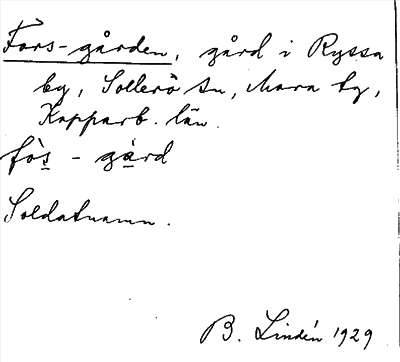 Fors-gården, gård i Ryssa
by, Sollerö sn, Mora tg,
Kopparb. län.
fò̀s̲ - gà̲rd
Soldatnamn.
B. Lindén 1929